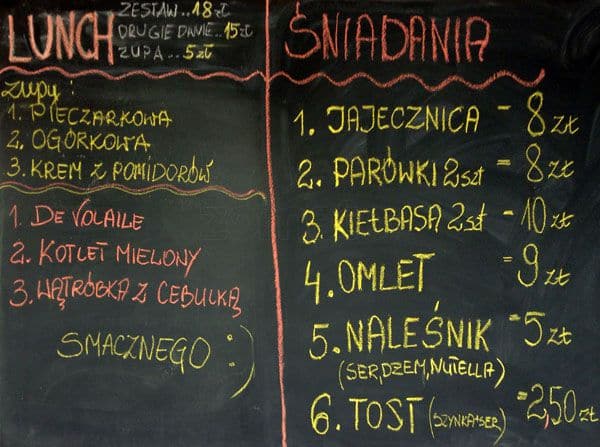 LUNCH
ZESTAW..18zł
DRUGIE DANIE..15zł
ZUPA..5zł
Zupy:
1. PIECZARKOWA
2. OGÓRKOWA
3. KREM Z POMIDORÓW
1. DE VOLAILE
2. KOTLET MIELONY
3. WĄTRÓBKA Z CEBULKĄ
SMACZNEGO :)
ŚNIADANIA
1. JAJECZNICA - 8 zł
2. PARÓWKI 2szt = 8 zł
3. KIEŁBASA 2szt - 10 zł
4. OMLET = 9 zł
5. NALEŚNIK = 5 zł
(SER, DŻEM, NUTELLA)
6. TOST (SZYNKA+SER) = 2,50 zł